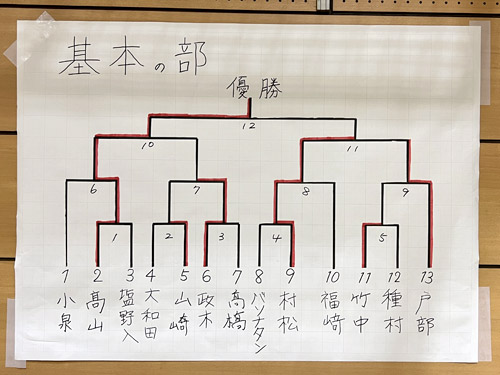 基本の部
優勝
12
10 11
6 7 8 9
1 2 3 4 5
1 2 3 4 5 6 7 8 9 10 11 12 13
小泉
髙山
塩野入
大和田
山崎
政木
髙橋
バンナタン
村松
福﨑
竹中
種村
戸部